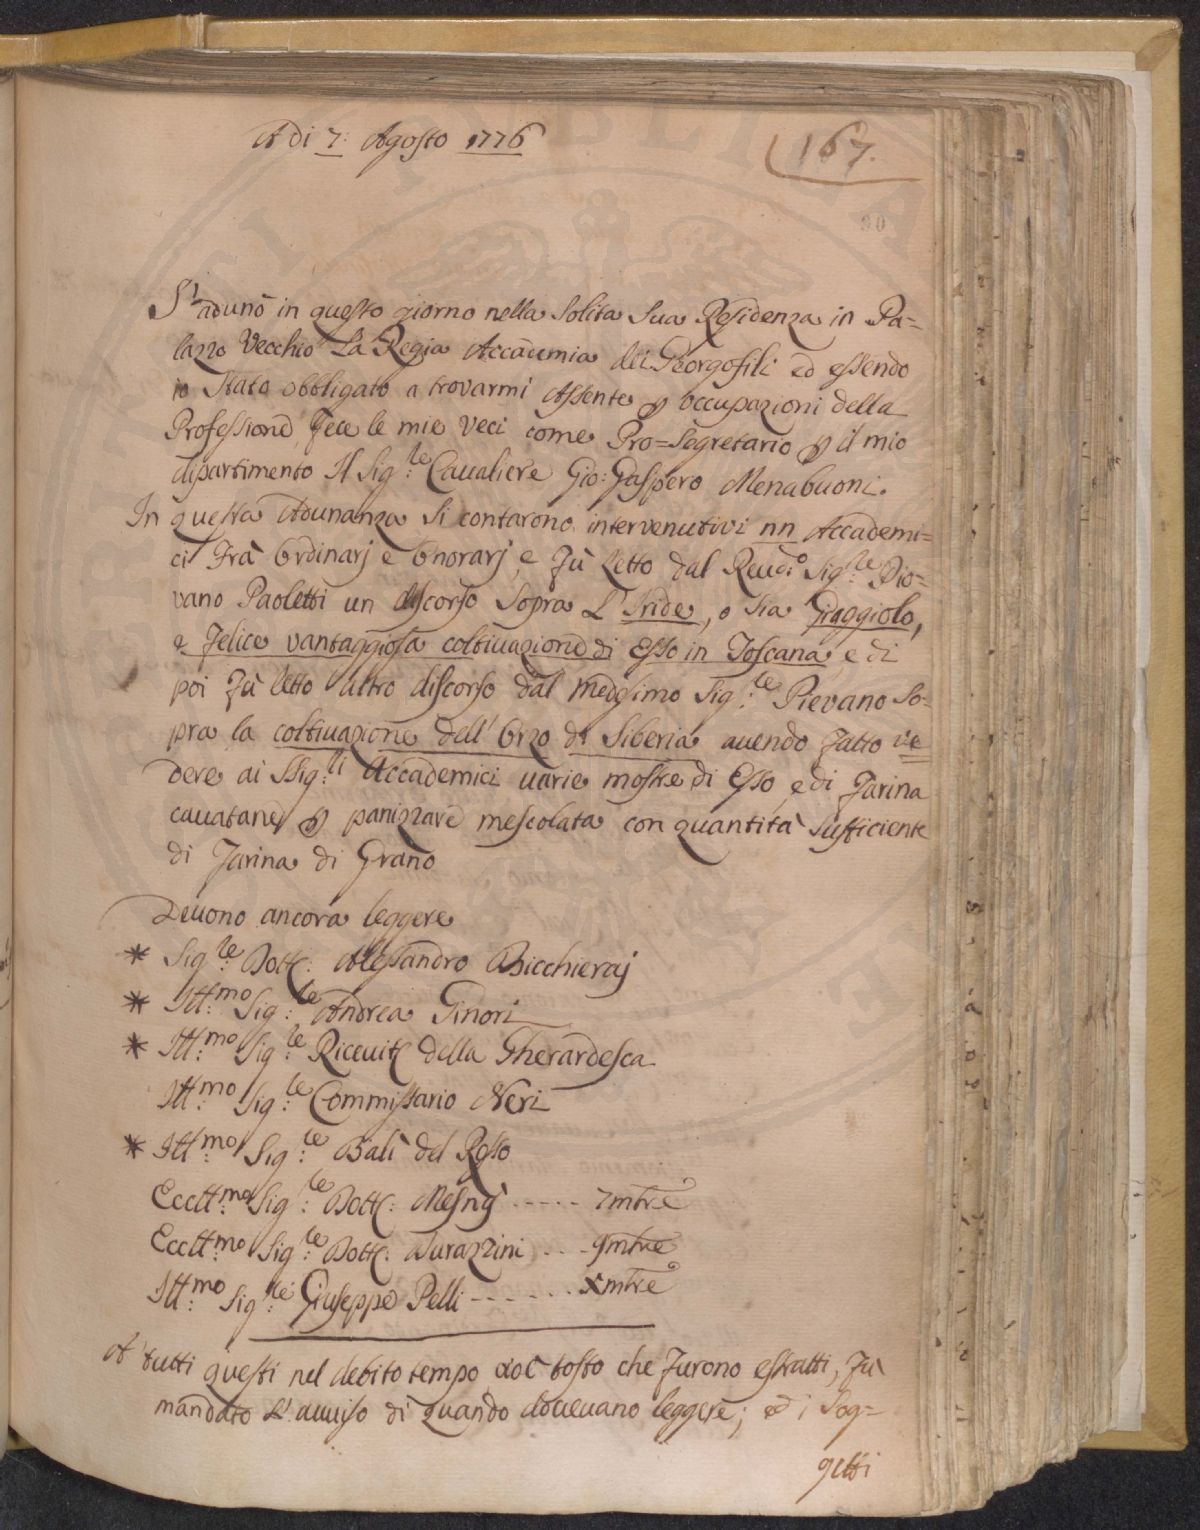 A di 7: Agosto 1776
167.
Si adunò in questo giorno nella Solita Sua Residenza in Pa=
lazzo Vecchio La Regia Accademia dei Georgofili ed essendo
io Stato obbligato a trovarmi Assente p occupazioni della
Professione, fece le mie Veci come Pro=Segretario p il mio
dipartimento Il Sig:re Cavaliere Gio: Gaspero Menabuoni.
In questa Adunanza Si contarono intervenutivi nn Accademi=
ci Frà Ordinarj e Onorarj, e Fù Letto dal Reud:o Sig:re Pio=
vano Paoletti un discorso Sopra L'Iride, o Sia Giaggiolo,
e Felice vantaggiosa coltivazione di Esso in Toscana, e di
poi Fù letto altro discorso dal medesimo Sig:re Pievano So=
pra la coltivazione dell'Orzo di Siberia avendo Fatto ve
dere ai SSig:ri Accademici varie mostre di Esso, e di Farina
cavatane p panizzare mescolata con quantità Sufficiente
di Farina di Grano
Devono ancora leggere
* Sig:re Dott: Alessandro Bicchieraj
* Ill:mo Sig:re Andrea Ginori
* Ill:mo Sig:re Della Gherardesca
Ill:mo Sig:re Commissario Neri
* Ill:mo Sig:re Balì del Rosso
Eccll:mo Sig:re Dott: Mesny ----- 7mbre
Eccll:mo Sig:re Dott: Durazzini --- 9mbre
Ill:mo Sig:re Giuseppe Pelli ------ Xmbre
A tutti questi nel debito tempo cioè tosto che Furono estratti, Fù
mandato L'avviso di quando dovevano leggere; ed i Sog=
getti